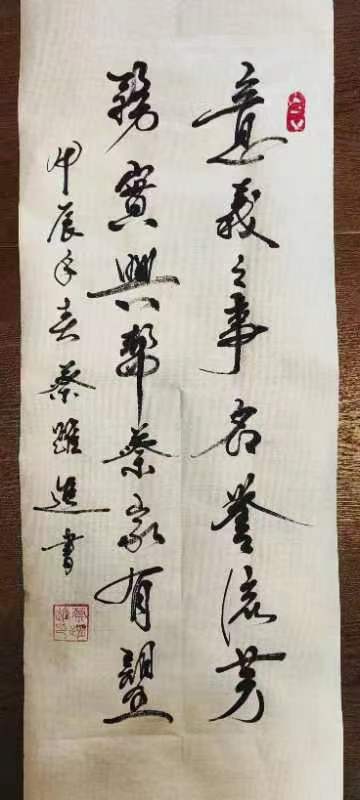 意義之事名譽流芳
務實興幫蔡家有望
甲辰年春蔡躍進書